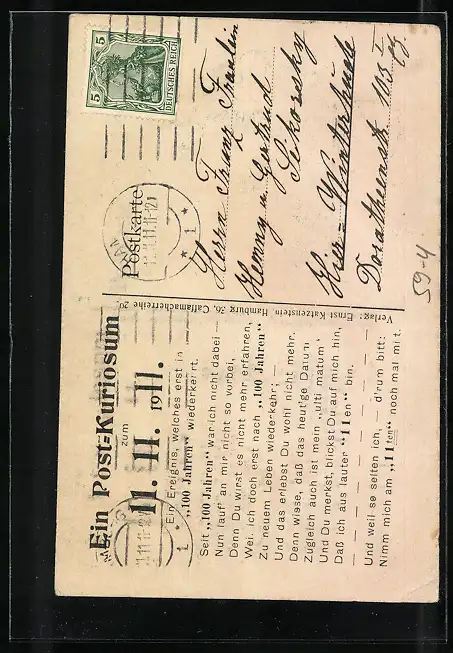 Ein Post-Kuriosum
zum
11. 11. 1911.
Ein Ereignis, welches erst in
„100 Jahren" wiederkehrt.
Seit „100 Jahren" war ich nicht dabei —
Nun lauf' an mir nicht so vorbei,
Denn Du wirst es nicht mehr erfahren,
Weil ich doch erst nach „100 Jahren"
Zu neuem Leben wiederkehr; —
Und das erlebst Du wohl nicht mehr.
Denn wisse, daß das heut'ge Datum
Zugleich auch ist mein „ulti matum'
Und Du merkst, blickst Du auf mich hin,
Daß ich aus lauter "11en" bin.
Und weil so selten ich, — d'rum bitt:
Nimm mich am „11ten" noch mal mit.
Verlag: Ernst Katzenstein Hamburg 36, Caffamacherreihe 20
Postkarte
DEUTSCHES REICH
5
5
Herrn Franz, Fräulein
Henny u Gertrud
Sikorsky
Hier = Winterhude
Dorotheenstr 103
59-4